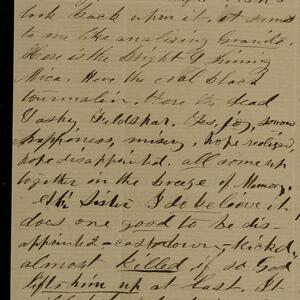 look back upon it, it seems
to me like analising Granite.
Here is the bright & shining
Mica. Here the coal black
tourmalin. Here the dead
Washy Feldspar. Yes, joy, sorrow
happiness, misery, hope realized,
hope disappointed. all come up
together in the breeze of Memory.
Sister I do believe it
does one good to be dis-
appointed - cast down - kicked,
almost killed if so God
lifts him up at last. It